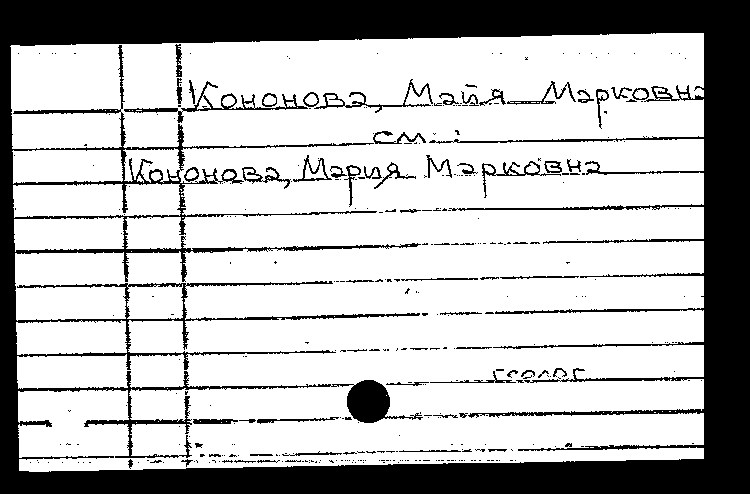 Кононова, Майя Марковна
см.:
Кононова, Мария Марковна
геолог